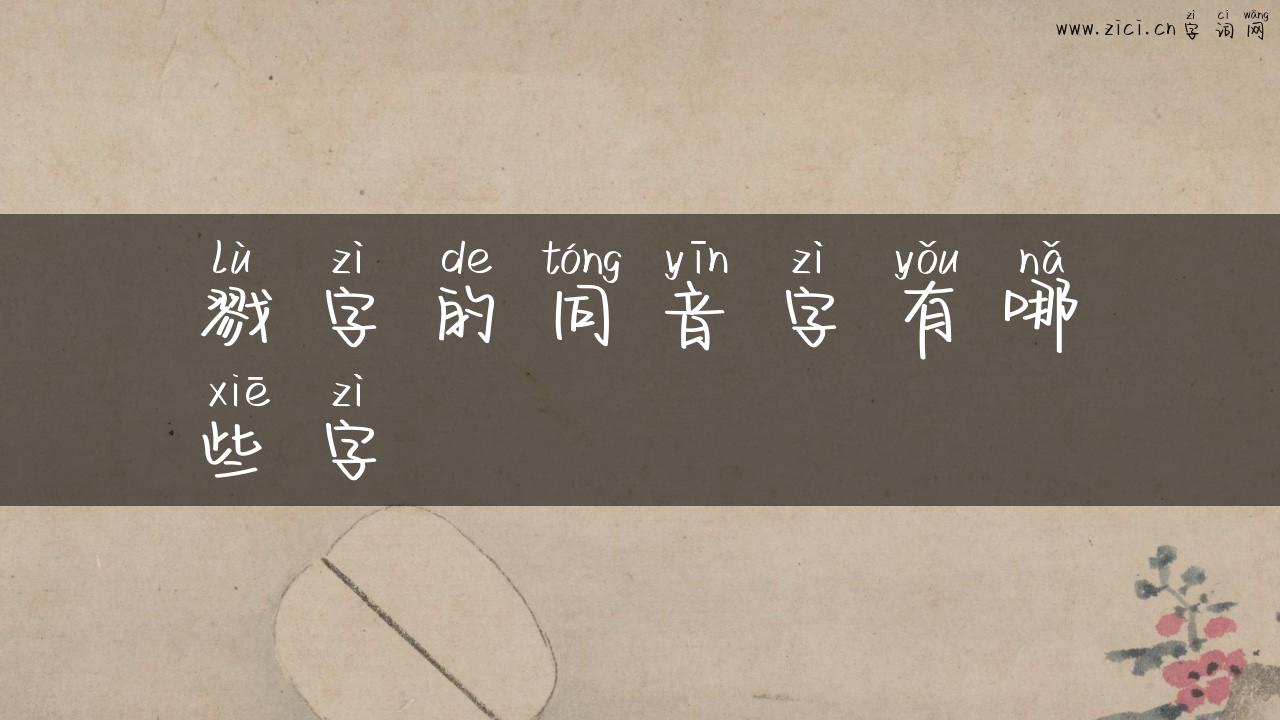 zì cí wǎng
www.zici.cn字词网
lù zì de tóng yīn zì yǒu nǎ
戮字的同音字有哪
xiē zì
些字